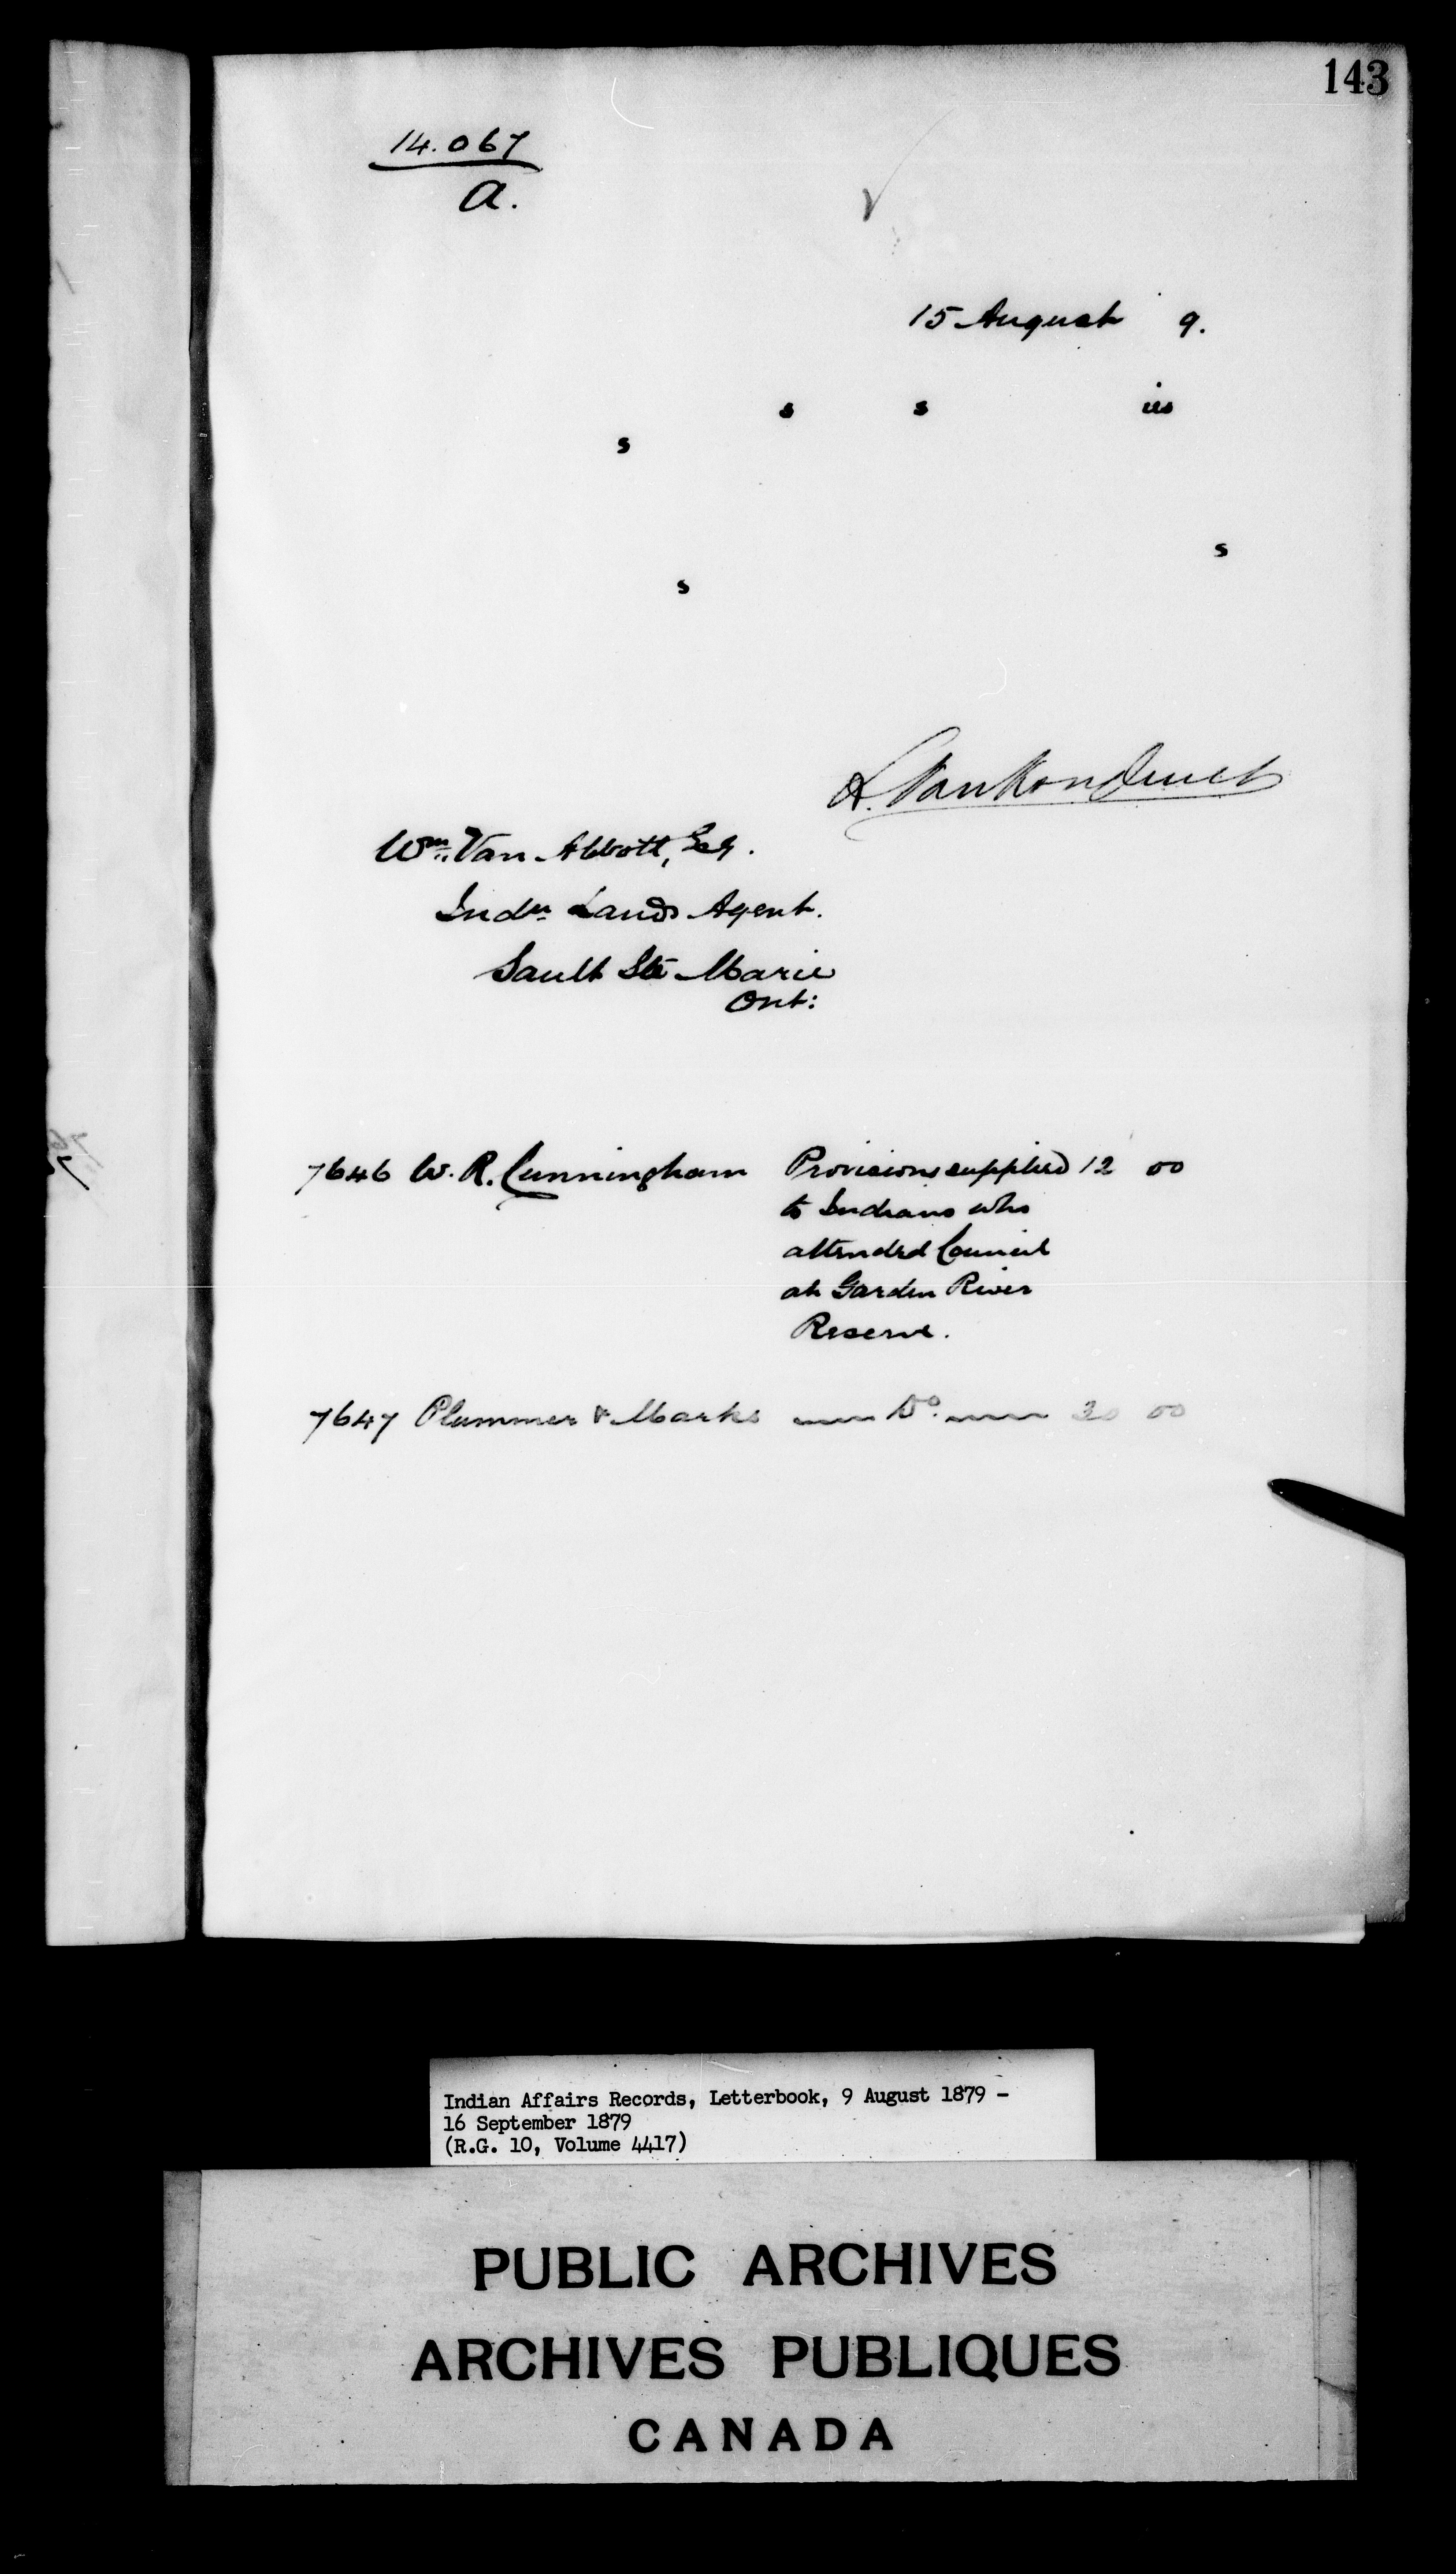 143
14.067
A.
15 August 9.
s s ies
s
s
s
L. VanKoughnet
Wm. Van Abbott, Esq.
Indn Lands Agent.
Sault Ste Marie
Ont:
7646 W. R. Cunningham Provisions supplied 12 00
to Indians who
attended Council
at Garden River
Reserve.
7647 Plummer & Marks Do. 30 00
Indian Affairs Records, Letterbook, 9 August 1879 -
16 September 1879
(R.G. 10, Volume 4417)
PUBLIC ARCHIVES
ARCHIVES PUBLIQUES
CANADA